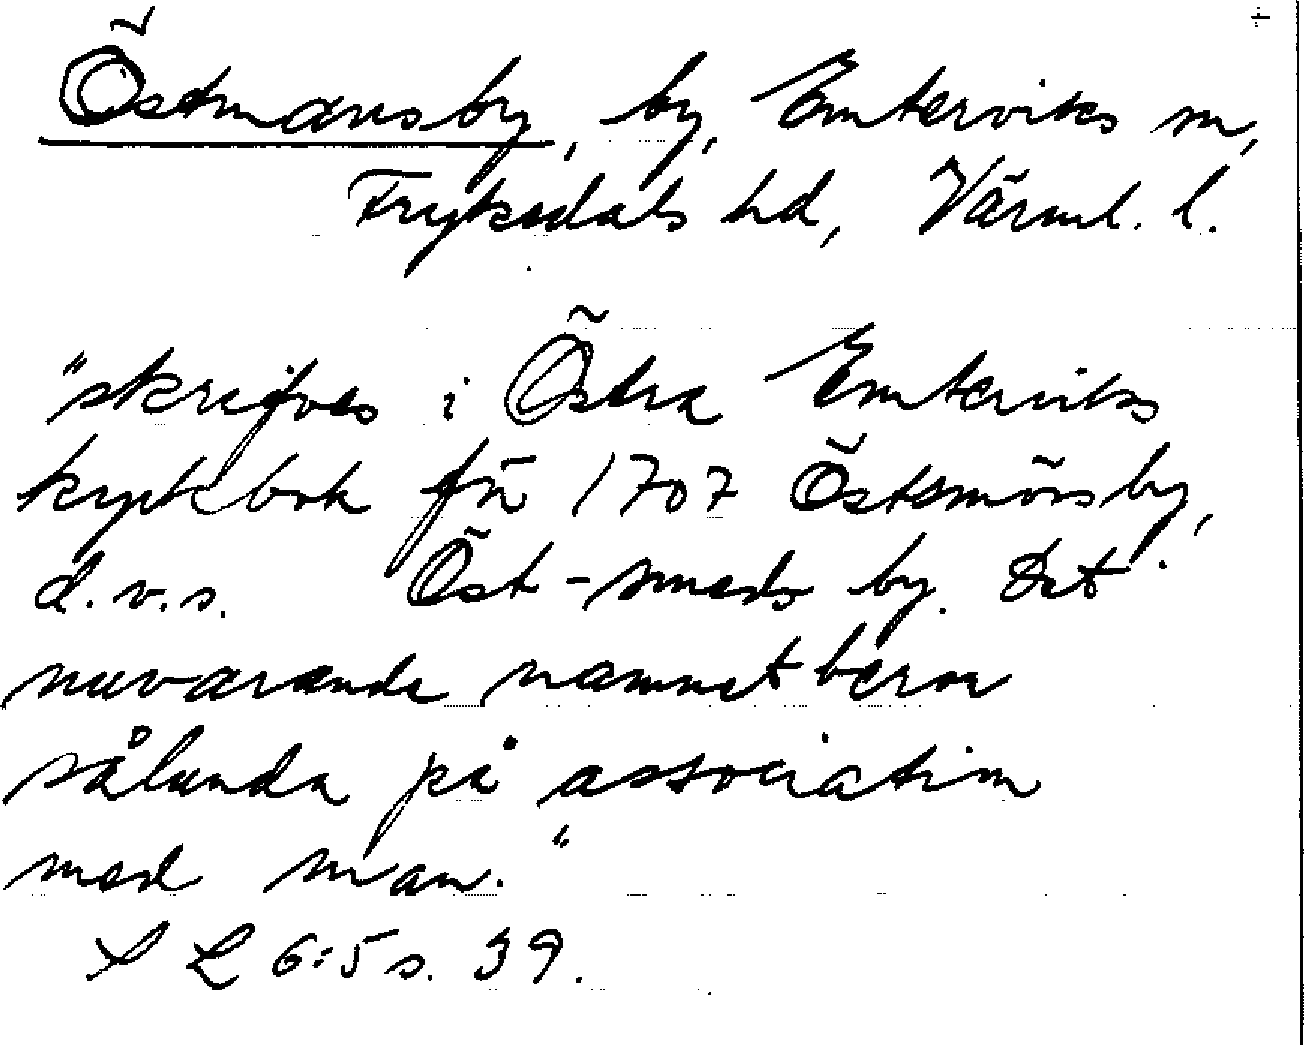 Östmansby, by, Emterviks sn,
Fryksdals hd, Värml. l.
"skrifves i Östra Emterviks
kyrkbok från 1707 Östsmörsby,
d.v.s. Öst-smeds by. Det
nuvarande namnet beror
sålunda på association
med man."
SL 6:5 s. 39.